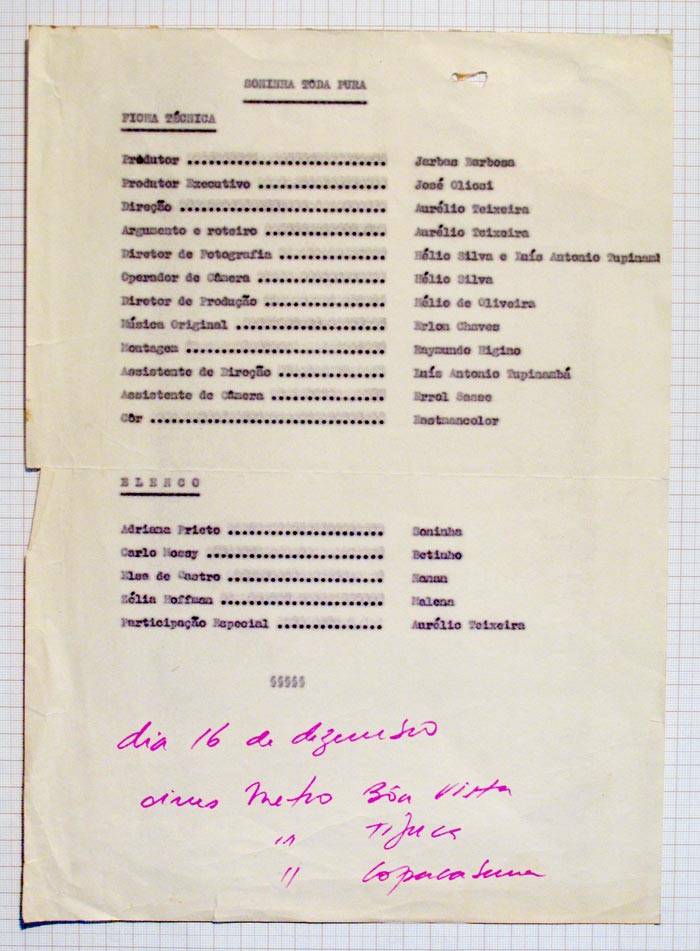 SONINHA TODA PURA
FICHA TÉCNICA
Produtor ........................................ Jarbas Barbosa
Produtor Executivo .......................... José Oliosi
Direção ......................................... Aurélio Teixeira
Argumento e roteiro ......................... Aurélio Teixeira
Diretor de Fotografia ...................... Hélio Silva e Luís Antonio Tupinamb
Operador de Câmera .......................... Hélio Silva
Diretor de Produção ......................... Hélio de Oliveira
Música Original .............................. Erlon Chaves
Montagem ........................................ Raymundo Higino
Assistente de Direção ...................... Luís Antonio Tupinambá
Assistente de Câmera ....................... Errol Sasse
Côr ............................................... Eastmancolor
E L E N C O
Adriana Prieto ................................ Soninha
Carlo Mossy .................................... Betinho
Elsa de Castro ................................ Nanan
Zélia Hoffman ................................. Malena
Participação Especial ...................... Aurélio Teixeira
§§§§§
dia 16 de dezembro
cines Metro Bôa Vista
" Tijuca
" Copacabana